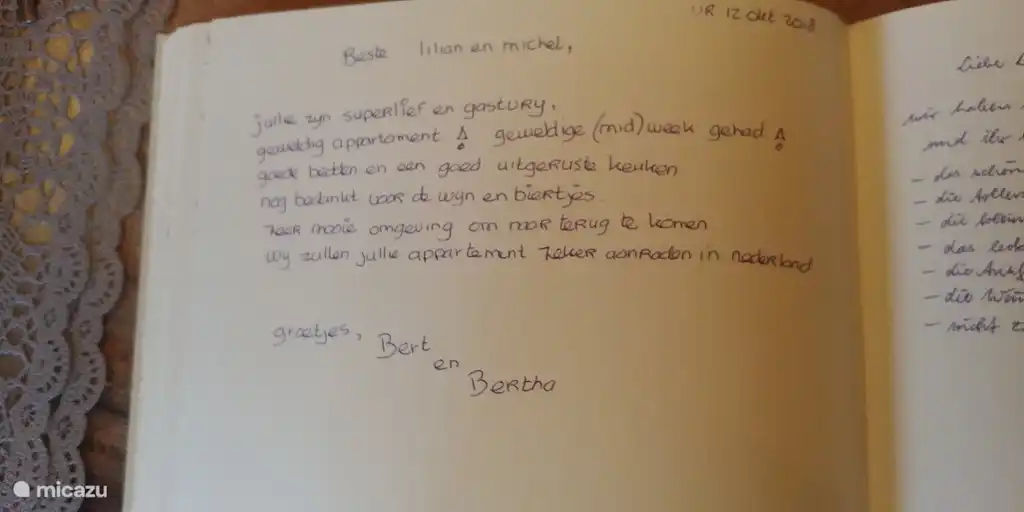 VR 12 okt 2018
Beste lilian en michel,
jullie zyn superlief en gastvry,
geweldig appartement ! geweldige (mid)week gehad !
goede bedden en een goed uitgeruste keuken
nog bedankt voor de wyn en biertjes.
zeer mooie omgeving om naar terug te komen.
wy zullen jullie appartement zeker aanraden in nederland
groetjes,
Bert
en
Bertha
Liebe
wir haben
und ihr
- das schön
- die
- die
- das
- die
- die
- nicht
micazu